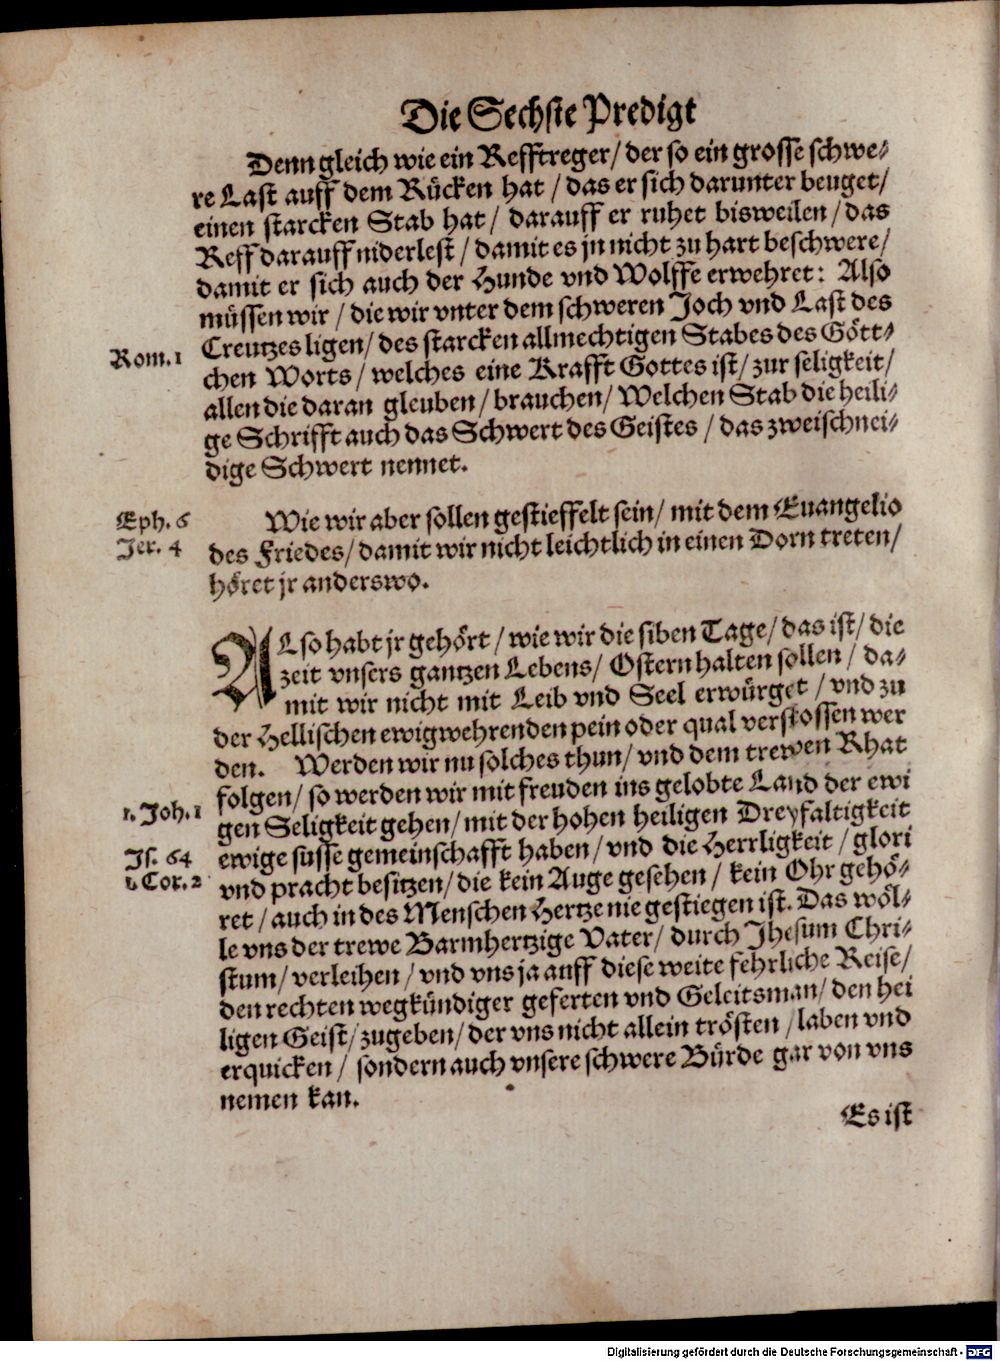 Die Sechste Predigt
Denn gleich wie ein Refftreger/ der so ein grosse schwe-
re Last auff dem Rücken hat / das er sich darunter beuget/
einen starcken Stab hat/ darauff er ruhet bisweilen/ das
Reff darauff niderlest / damit es jn nicht zu hart beschwere/
damit er sich auch der Hunde vnd Wolffe erwehret: Also
müssen wir / die wir vnter dem schweren Joch vnd Last des
Rom. 1
Creutzes ligen/ des starcken allmechtigen Stabes des Gött-
chen Worts/ welches eine Krafft Gottes ist/ zur seligkeit/
allen die daran gleuben/ brauchen/ Welchen Stab die heili-
ge Schrifft auch das Schwert des Geistes / das zweischnei-
dige Schwert nennet.
Eph. 6
Wie wir aber sollen gestieffelt sein/ mit dem Euangelio
Jer. 4
des Friedes/ damit wir nicht leichtlich in einen Dorn treten/
höret jr anderswo.
ALso habt jr gehört / wie wir die siben Tage/ das ist/ die
zeit vnsers gantzen Lebens/ Ostern halten sollen / da-
mit wir nicht mit Leib vnd Seel erwürget / vnd zu
der Hellischen ewigwehrenden pein oder qual verstossen wer
den. Werden wir nu solches thun/ vnd dem trewen Rhat
folgen/ so werden wir mit freuden ins gelobte Land der ewi
1. Joh. 1
gen Seligkeit gehen/ mit der hohen heiligen Dreyfaltigkeit
Js. 64
ewige süsse gemeinschafft haben/ vnd die Herrligkeit / glori
1. Cor. 2
vnd pracht besitzen/ die kein Auge gesehen / kein Ohr gehö-
ret / auch in des Menschen Hertze nie gestiegen ist. Das wöl-
le vns der trewe Barmhertzige Vater/ durch Jhesum Chri-
stum/ verleihen / vnd vns ja auff diese weite fehrliche Reise/
den rechten wegkündiger geferten vnd Geleitsman/ den hei
ligen Geist/ zugeben/ der vns nicht allein trösten / laben vnd
erquicken / sondern auch vnsere schwere Bürde gar von vns
nemen kan.
Es ist
Digitalisierung gefördert durch die Deutsche Forschungsgemeinschaft - DFG